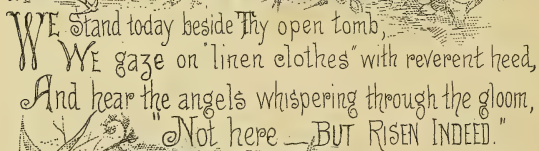 WE stand today beside Thy open tomb,
We gaze on "linen clothes" with reverent heed,
And hear the angels whispering through the gloom,
"Not here — BUT RISEN INDEED."